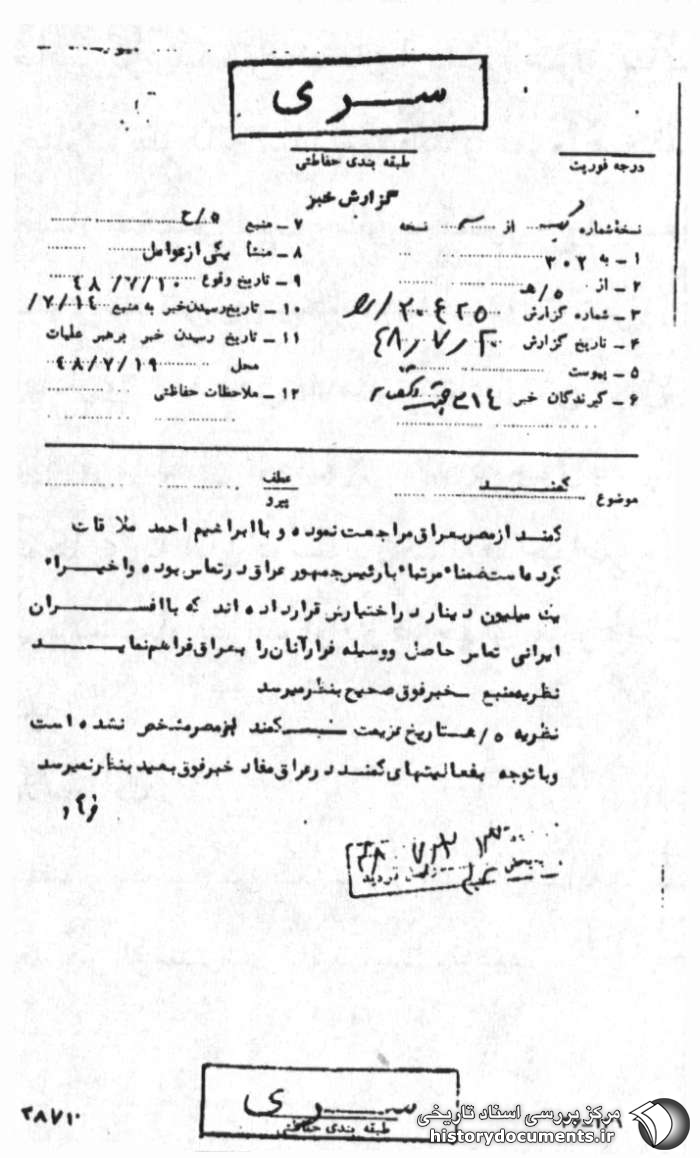 سری
طبقه بندی حفاظتی
درجه فوریت
گزارش خبر
نسخهٔ شماره یک از نسخه
۱ - به ۳۰۲
۲ - از ۵/هـ
۳ - شماره گزارش ۲۰۴۲۵/
۴ - تاریخ گزارش ۴۸/۷/۲۰
۵ - پیوست
۶ - گیرندگان خبر ۳۱۴
۷ - منبع ۵/ح
۸ - منشأ یکی از عوامل
۹ - تاریخ وقوع ۴۸/۷/۱۰
۱۰ - تاریخ رسیدن خبر به منبع ۷/۱۴/
۱۱ - تاریخ رسیدن خبر برهبر عملیات
محل ۴۸/۷/۱۹
۱۲ - ملاحظات حفاظتی
موضوع کمند
عطف
پیرو
کمند از مصر بعراق مراجعت نموده و با ابراهیم احمد ملاقات
کرده است ضمناً مرتباً با رئیس جمهور عراق در تماس بوده و اخیراً
یک میلیون دینار در اختیارش قرار داده اند که با افسران
ایرانی تماس حاصل و وسیله فرار آنان را بعراق فراهم نماید
نظریه منبع - خبر فوق صحیح بنظر میرسد
نظریه ۵/هـ تاریخ عزیمت کمند از مصر مشخص نشده است
و با توجه بفعالیتهای کمند در عراق مفاد خبر فوق بعید بنظر نمیرسد
۴۸ ۷
گردید
سری
طبقه بندی حفاظتی
۳۸۷۱۰
مرکز بررسی اسناد تاریخی
historydocuments.ir